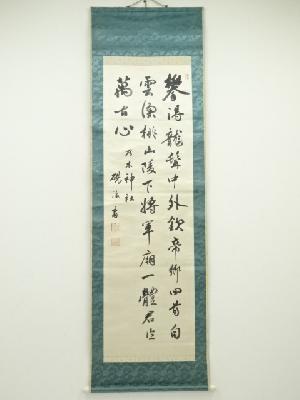 攀得龍髯中外欽帝鄉回首白
雲深桃山陵下將軍廟一體君臣
萬古心 乃木神社